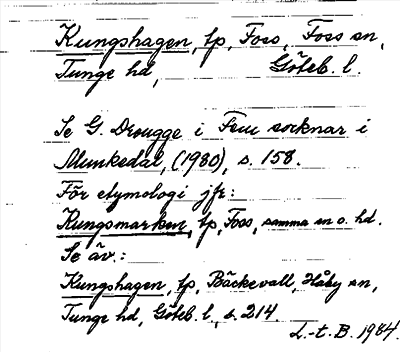 Kungshagen, tp, Foss, Foss sn,
Tunge hd, Göteb. l.
Se G. Drougge i Fem socknar i
Munkedal, (1980), s. 158.
För etymologi jfr:
Kungsmarken, tp, Foss, samma sn o. hd.
Se äv.:
Kungshagen, tp, Bäckevall, Håby sn,
Tunge hd, Göteb. l, s. 214.
L.-t. B. 1984.